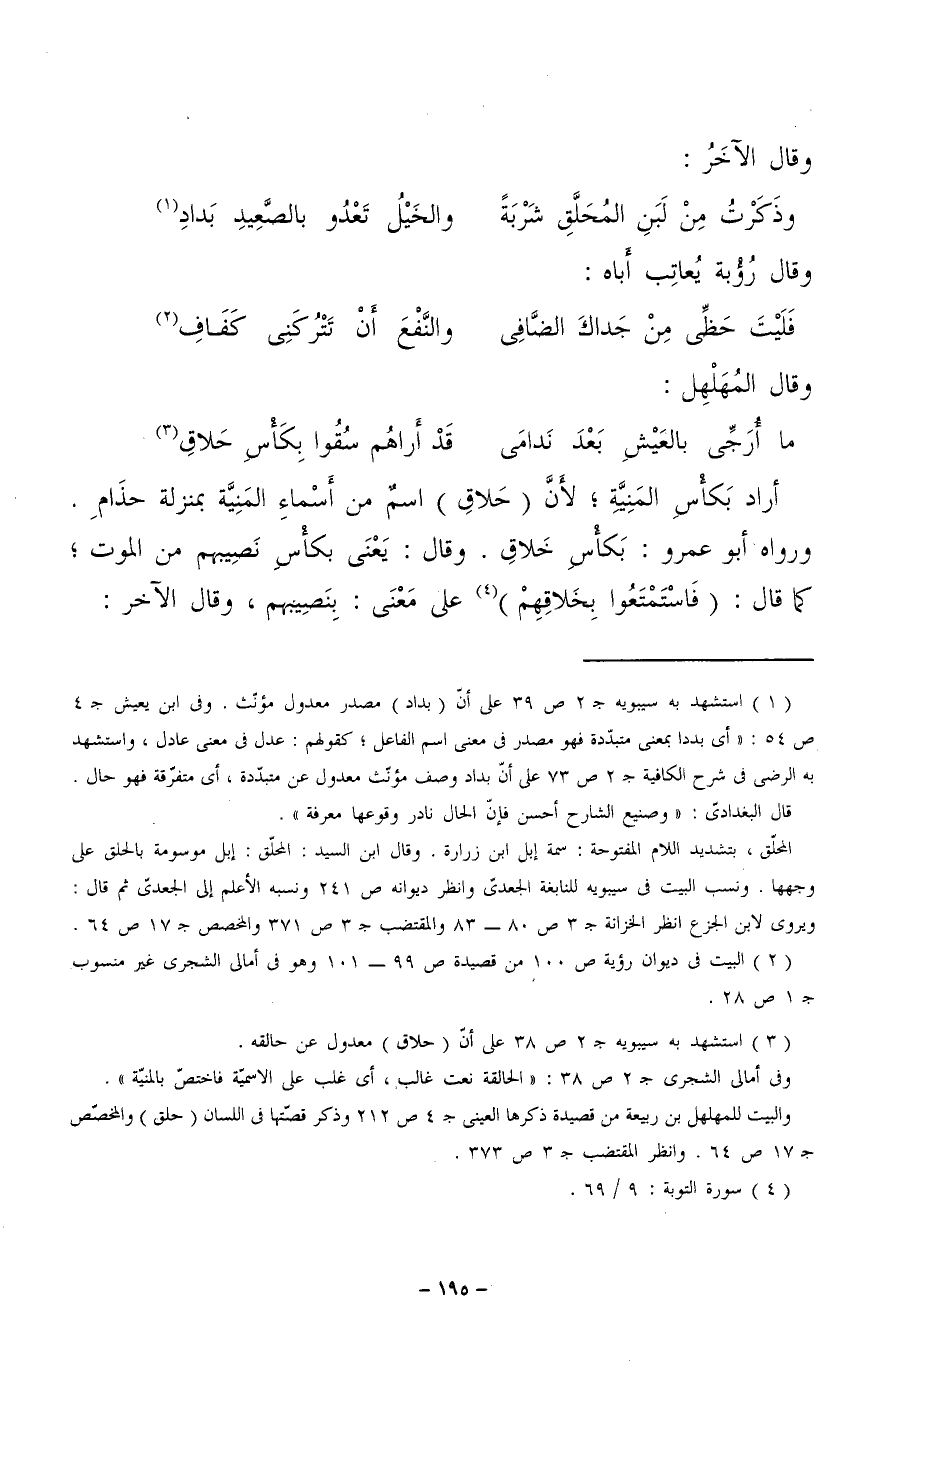 وقال الآخَرُ :
وذَكَرْتُ مِنْ لَبَنِ المُحَلَّقِ شَرْبَةً     والخَيْلُ تَعْدُو بالصَّعِيدِ بَدادِ(١)
وقال رُؤْبة يُعاتِب أَباه :
فَلَيْتَ حَظِّى مِنْ جَداكَ الضَّافِى     والنَّفْعَ أَنْ تَتْرُكَنِى كَفَافِ(٢)
وقال المُهَلْهِل :
ما أُرَجِّى بالعَيْشِ بَعْدَ نَدامَى     قَدْ أَراهُم سُقُوا بِكَأْسِ حَلاقِ(٣)
أراد بَكأْسِ المَنِيَّةِ ؛ لأَنَّ ( حَلاقِ ) اسمٌ من أَسْماءِ المَنِيَّة بمنزلة حذَامِ .
ورواه أبو عمرو : بَكأْسِ خَلاقِ . وقال : يَعْنَى بكأْسِ نَصِيبهم من الموت ؛
كما قال : ( فَاسْتَمْتَعُوا بِخَلاقِهِمْ )(٤) على مَعْنَى : بِنَصِيبهم ، وقال الآخر :
( ١ ) استشهد به سيبويه جـ ٢ ص ٣٩ على أنّ ( بداد ) مصدر معدول مؤنّث . وفى ابن يعيش جـ ٤
ص ٥٤ : « أى بددا بمعنى متبدّدة فهو مصدر فى معنى اسم الفاعل ؛ كقولهم : عدل فى معنى عادل ، واستشهد
به الرضى فى شرح الكافية جـ ٢ ص ٧٣ على أنّ بداد وصف مؤنّث معدول عن متبدّدة ، أى متفرّقة فهو حال .
قال البغدادىّ : « وصنيع الشارح أحسن فإنّ الحال نادر وقوعها معرفة » .
المحلّق ، بتشديد اللام المفتوحة : سمة إبل ابن زرارة . وقال ابن السيد : المحلّق : إبل موسومة بالحلق على
وجهها . ونسب البيت فى سيبويه للنابغة الجعدىّ وانظر ديوانه ص ٢٤١ ونسبه الأعلم إلى الجعدىّ ثم قال :
ويروى لابن الجزع انظر الخزانة جـ ٣ ص ٨٠ – ٨٣ والمقتضب جـ ٣ ص ٣٧١ والمخصص جـ ١٧ ص ٦٤ .
( ٢ ) البيت فى ديوان رؤبة ص ١٠٠ من قصيدة ص ٩٩ – ١٠١ وهو فى أمالى الشجرى غير منسوب
جـ ١ ص ٢٨ .
( ٣ ) استشهد به سيبويه جـ ٢ ص ٣٨ على أنّ ( حلاق ) معدول عن حالقه .
وفى أمالى الشجرى جـ ٢ ص ٣٨ : « الحالقة نعت غالب ، أى غلب على الاسميّة فاختصّ بالمنيّة » .
والبيت للمهلهل بن ربيعة من قصيدة ذكرها العينى جـ ٤ ص ٢١٢ وذكر قصّتها فى اللسان ( حلق ) والمخصّص
جـ ١٧ ص ٦٤ . وانظر المقتضب جـ ٣ ص ٣٧٣ .
( ٤ ) سورة التوبة : ٩ / ٦٩ .
– ١٩٥ –